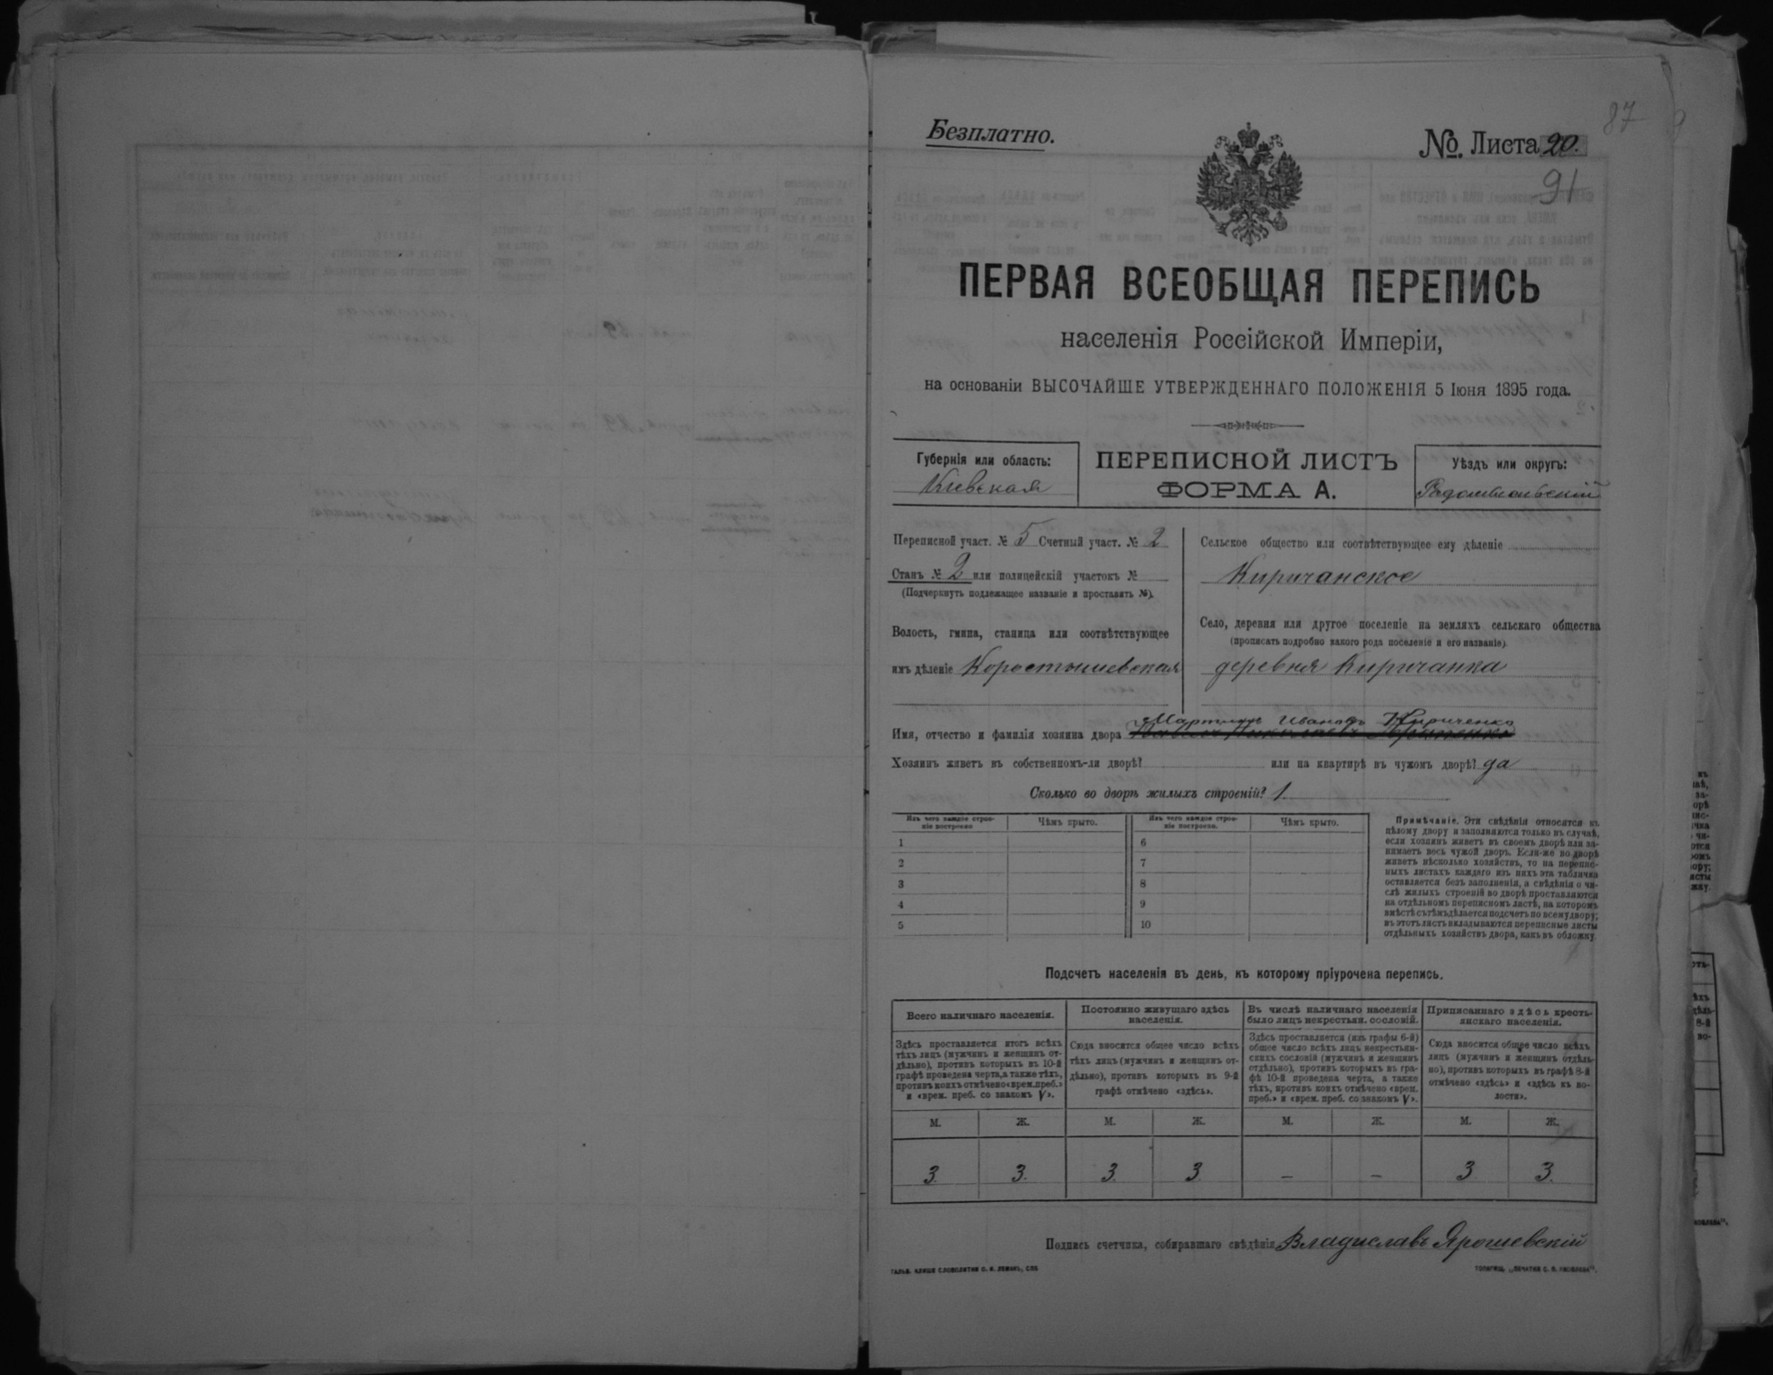 Безплатно.
№. Листа 20.
87
91
ПЕРВАЯ ВСЕОБЩАЯ ПЕРЕПИСЬ
населенія Россійской Имперіи,
на основаніи ВЫСОЧАЙШЕ УТВЕРЖДЕННАГО ПОЛОЖЕНІЯ 5 Іюня 1895 года.
Губернія или область:
Кіевская
ПЕРЕПИСНОЙ ЛИСТЪ
ФОРМА А.
Уѣздъ или округъ:
Радомысльскій
Переписной участ. № 5 Счетный участ. № 2
Станъ № 2 или полицейскій участокъ №
(Подчеркнуть подлежащее названіе и проставить №).
Волость, гмина, станица или соотвѣтствующее
имъ дѣленіе Коростышевская
Сельское общество или соотвѣтствующее ему дѣленіе
Киричанское
Село, деревня или другое поселеніе на земляхъ сельскаго общества
(прописать подробно какого рода поселеніе и его названіе)
деревня Киричанка
Мартинъ Ивановъ Кириченко
Имя, отчество и фамилія хозяина двора
Хозяинъ живетъ въ собственномъ-ли дворѣ? или на квартирѣ въ чужомъ дворѣ? да
Сколько во дворѣ жилыхъ строеній? 1
Изъ чего каждое строе-
ніе построено
Чѣмъ крыто.
Изъ чего каждое строе-
ніе построено.
Чѣмъ крыто.
1
2
3
4
5
6
7
8
9
10
Примѣчаніе. Эти свѣдѣнія относятся къ
цѣлому двору и заполняются только въ случаѣ,
если хозяинъ живетъ въ своемъ дворѣ или за-
нимаетъ весь чужой дворъ. Если-же во дворѣ
живетъ нѣсколько хозяйствъ, то на перепис-
ныхъ листахъ каждаго изъ нихъ эта табличка
оставляется безъ заполненія, а свѣдѣнія о чи-
слѣ жилыхъ строеній во дворѣ проставляются
на отдѣльномъ переписномъ листѣ, на которомъ
вмѣстѣ съ тѣмъ дѣлается подсчетъ по всему двору;
въ этотъ листъ вкладываются переписные листы
отдѣльныхъ хозяйствъ двора, какъ въ обложку.
Подсчетъ населенія въ день, къ которому пріурочена перепись.
Всего наличнаго населенія.
Здѣсь проставляется итогъ всѣхъ
тѣхъ лицъ (мужчинъ и женщинъ от-
дѣльно), противъ которыхъ въ 10-й
графѣ проведена черта, а также тѣхъ,
противъ коихъ отмѣчено «врем. преб.»
и «врем. преб. со знакомъ V».
Постоянно живущаго здѣсь
населенія.
Сюда вносится общее число всѣхъ
тѣхъ лицъ (мужчинъ и женщинъ от-
дѣльно), противъ которыхъ въ 9-й
графѣ отмѣчено «здѣсь».
Въ числѣ наличнаго населенія
было лицъ некрестьян. сословій.
Здѣсь проставляется (изъ графы 6-й)
общее число всѣхъ лицъ некрестьян-
скихъ сословій (мужчинъ и женщинъ
отдѣльно), противъ которыхъ въ гра-
фѣ 10-й проведена черта, а также
тѣхъ, противъ коихъ отмѣчено «врем.
преб.» и «врем. преб. со знакомъ V».
Приписаннаго здѣсь кресть-
янскаго населенія.
Сюда вносится общее число всѣхъ
лицъ (мужчинъ и женщинъ отдѣль-
но), противъ которыхъ въ графѣ 8-й
отмѣчено «здѣсь» и «здѣсь въ во-
лости».
М. Ж. М. Ж. М. Ж. М. Ж.
3. 3. 3. 3 – – 3 3.
Подпись счетчика, собиравшаго свѣдѣнія Владиславъ Ярошевскій
ГАЛЬВ. КЛИШЕ СЛОВОЛИТНИ О. И. ЛЕМАНЪ, СПБ